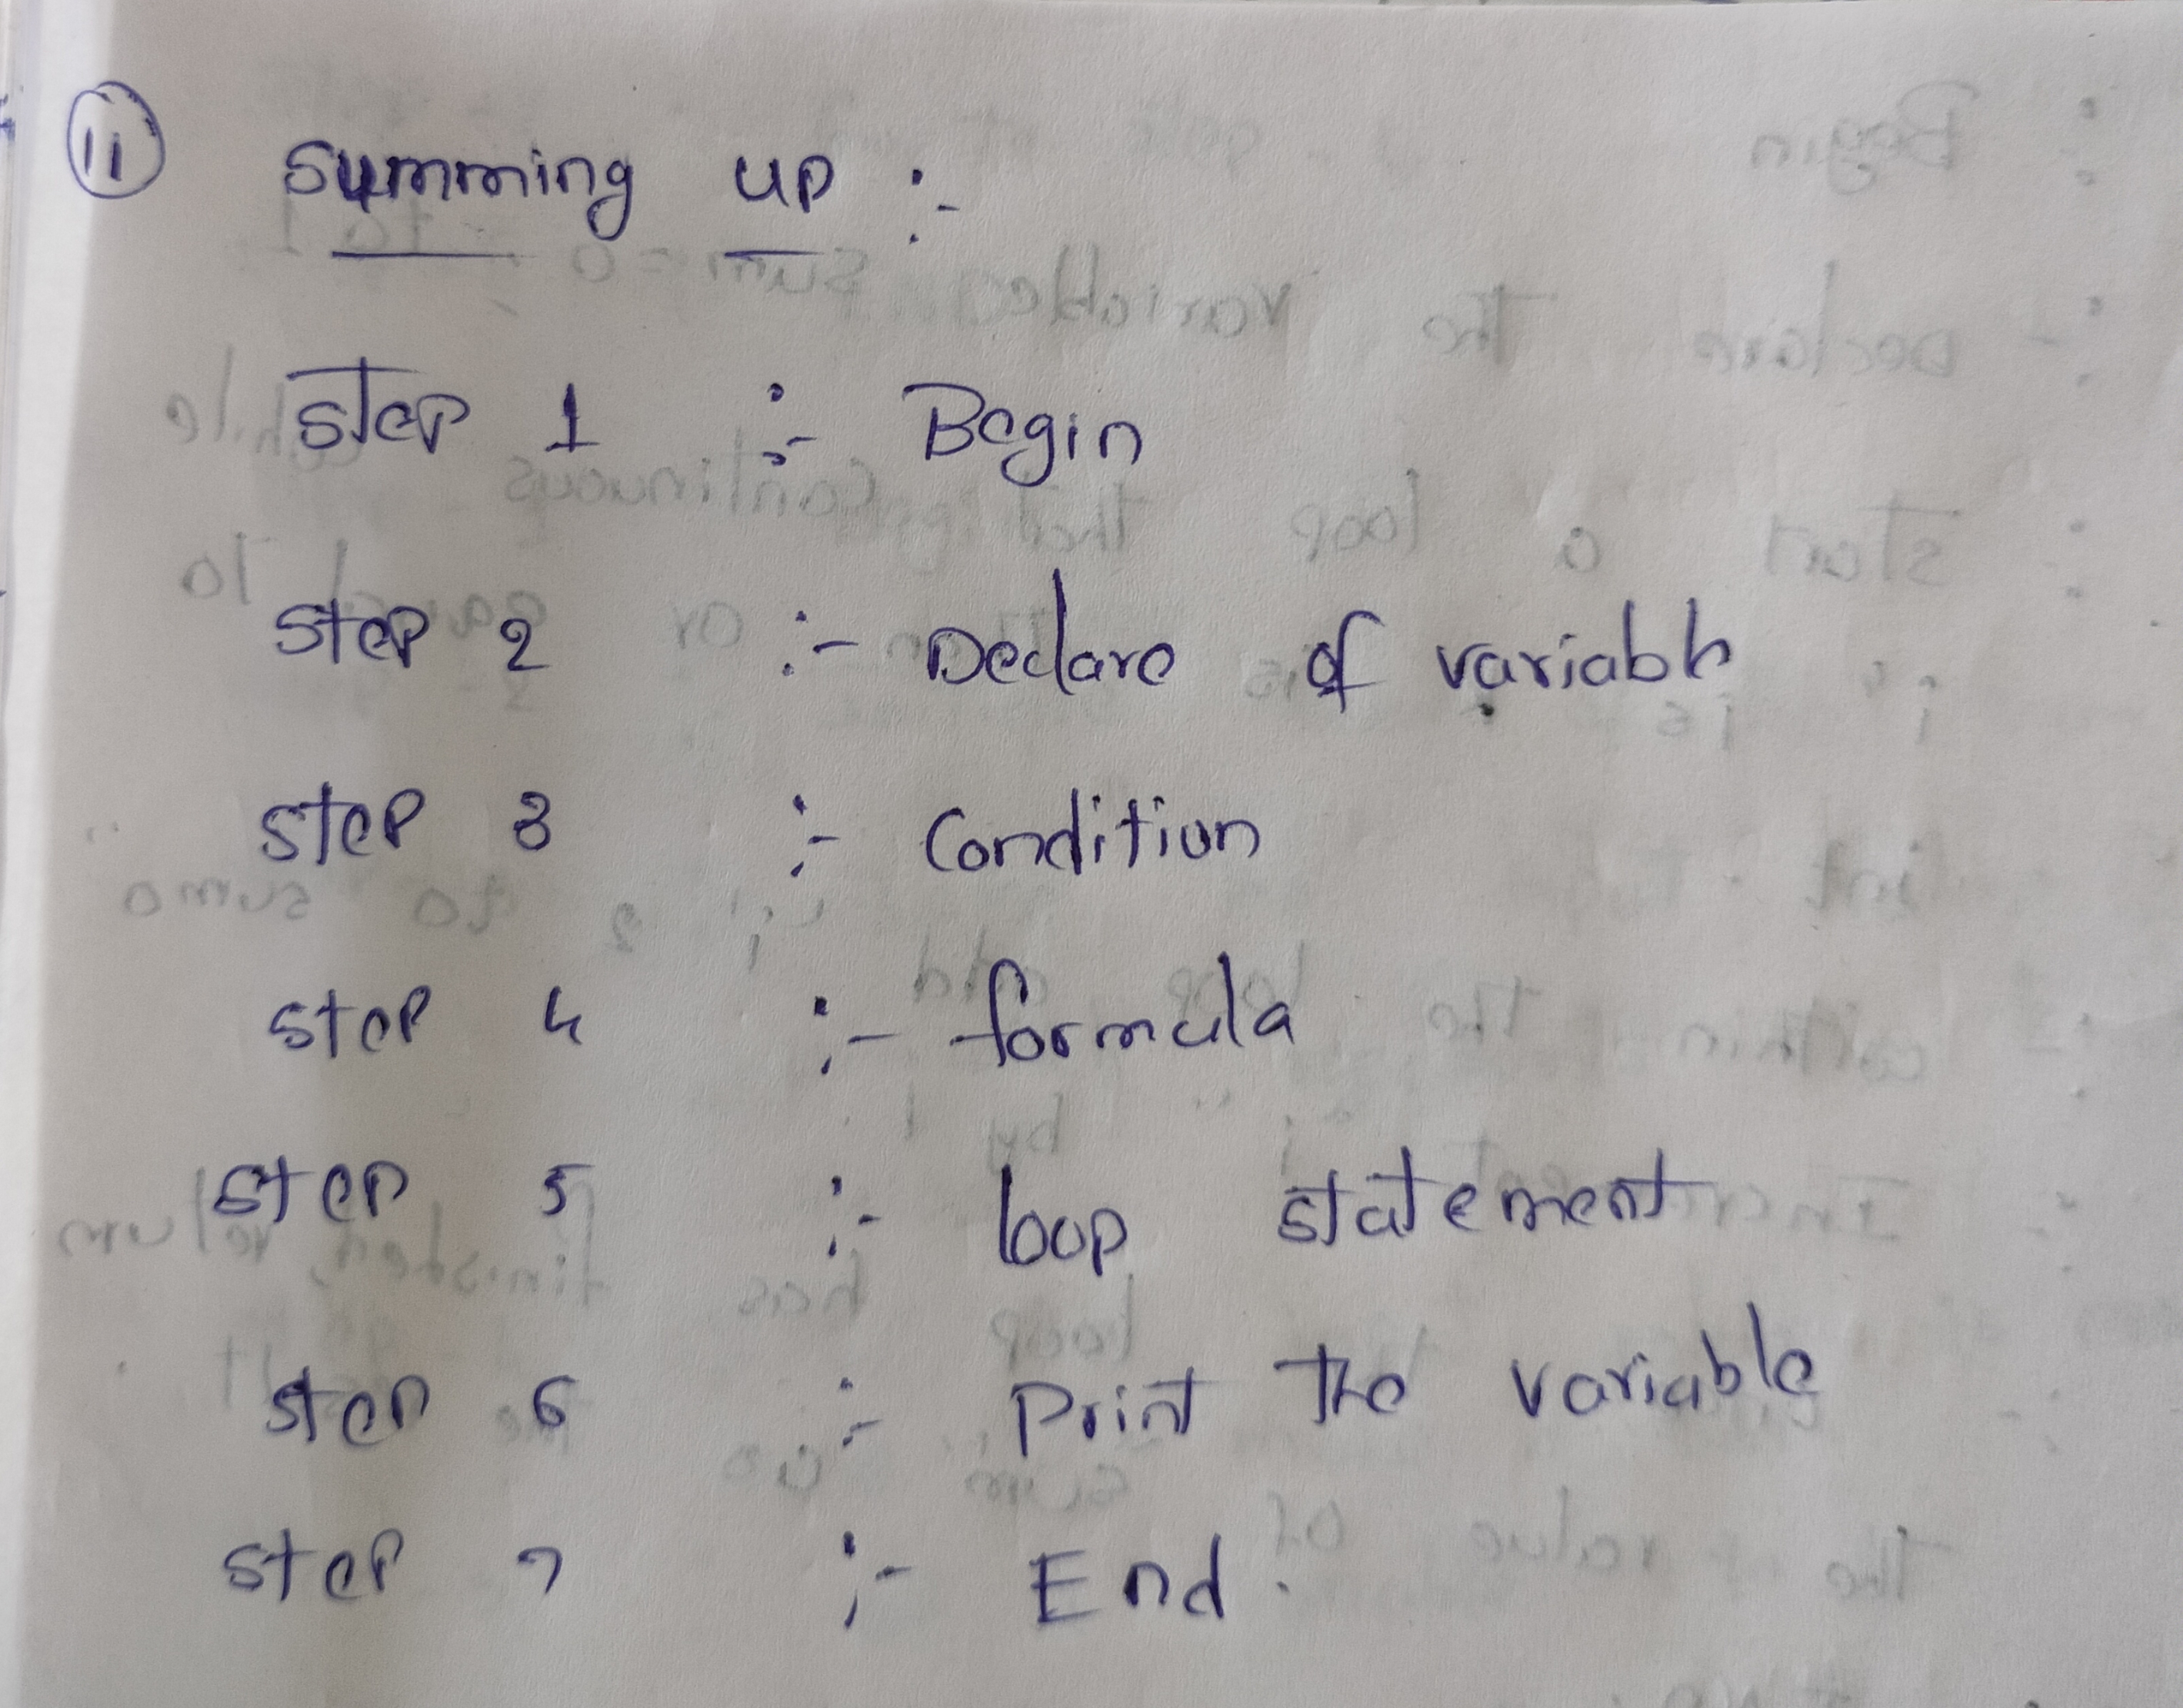 11 Summing up :-
Step 1 :- Begin
Step 2 :- Declare of variable
Step 3 :- Condition
Step 4 :- formula
Step 5 :- loop statement
Step 6 :- Print the variable
Step 7 :- End.